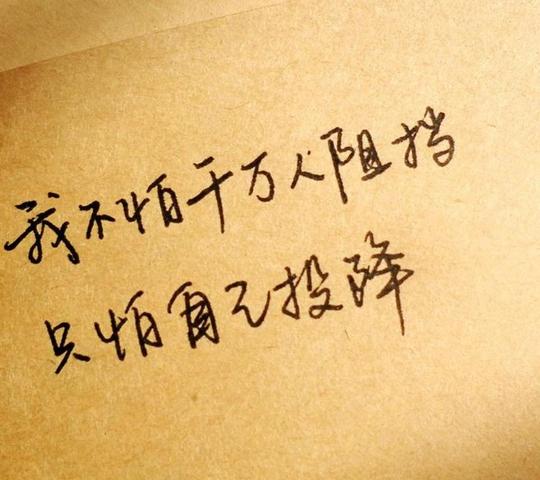 我不怕千万人阻挡
只怕自己投降